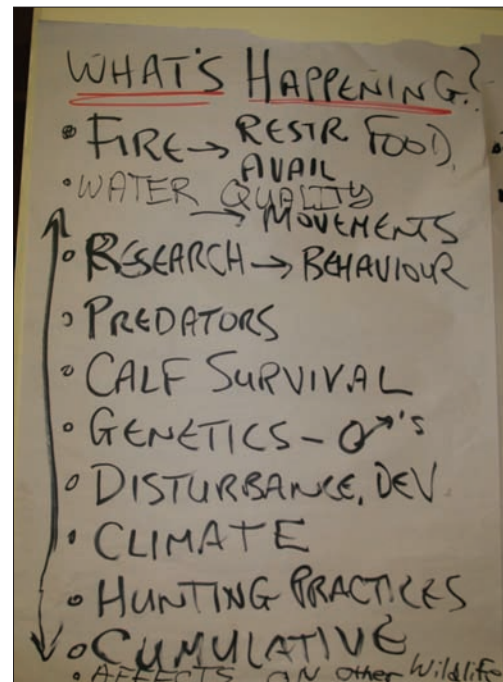 WHAT'S HAPPENING?
• FIRE → RESTR FOOD,
AVAIL
• WATER QUALITY
→ MOVEMENTS
• RESEARCH → BEHAVIOUR
• PREDATORS
• CALF SURVIVAL
• GENETICS - ♂'s
• DISTURBANCE, DEV.
• CLIMATE
• HUNTING PRACTICES
• CUMULATIVE
• AFFECTS ON other Wildlife